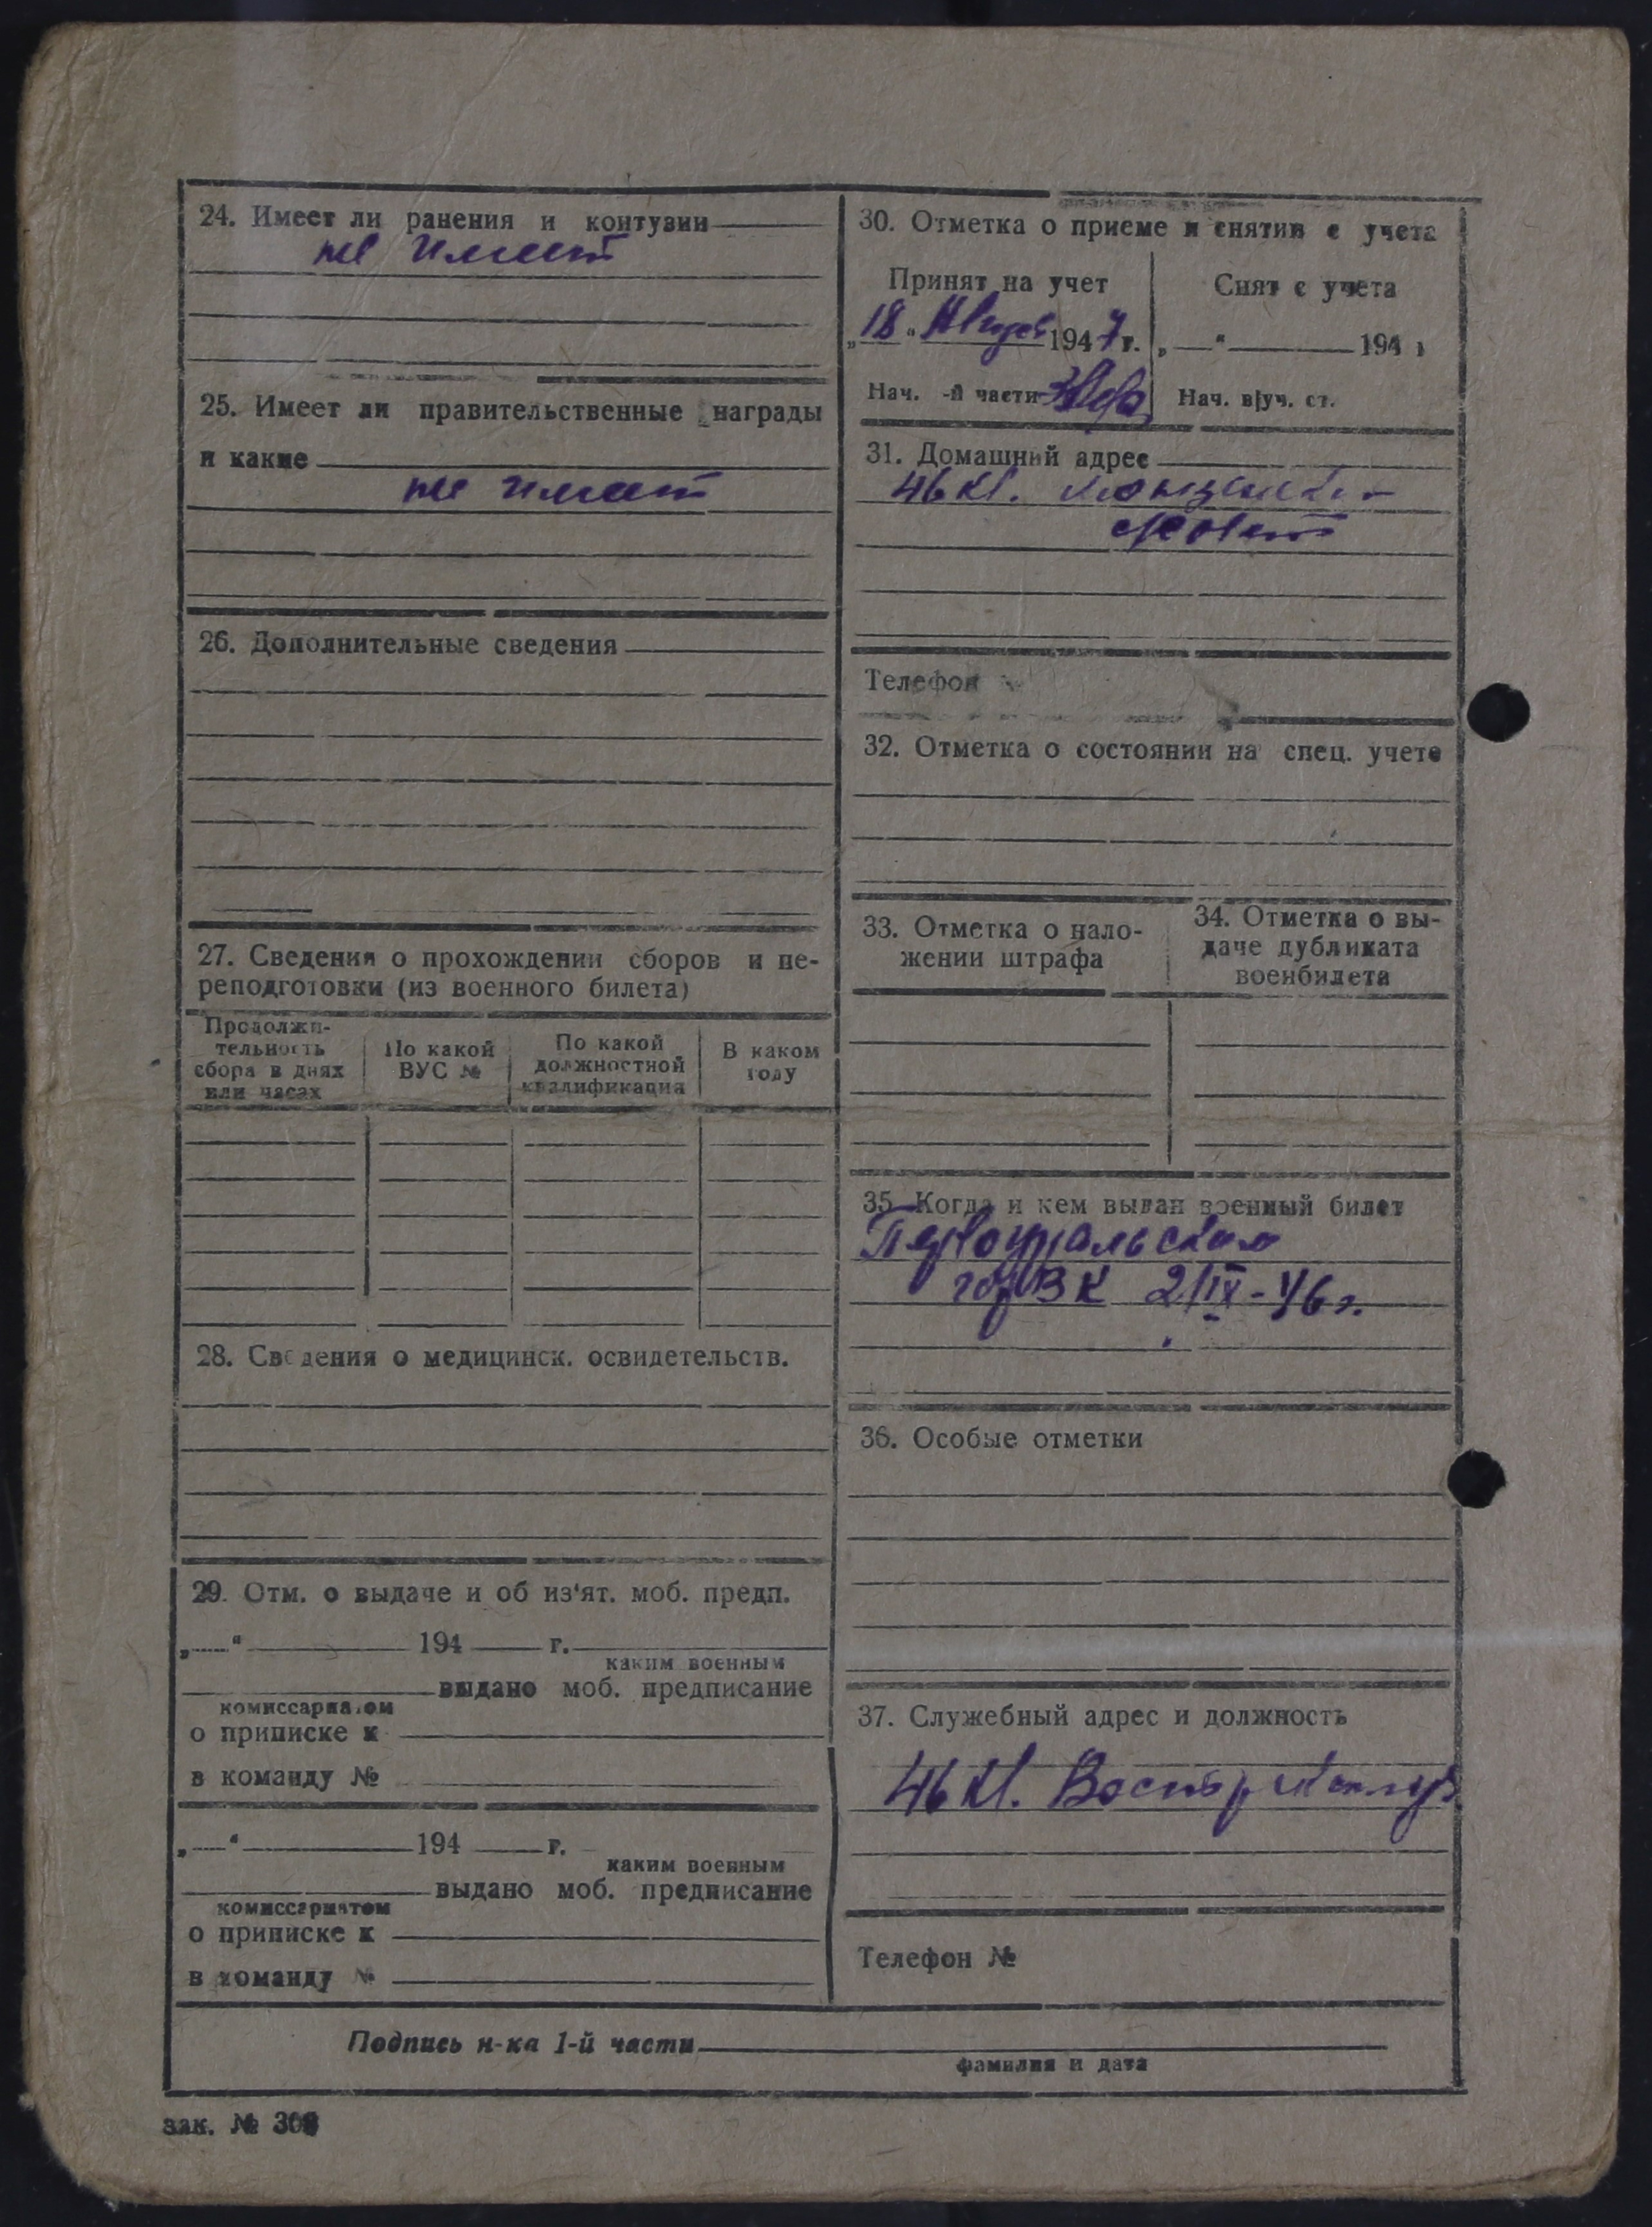 24. Имеет ли ранения и контузии
не имеет
25. Имеет ли правительственные награды
и какие
не имеет
26. Дополнительные сведения
27. Сведения о прохождении сборов и пе-
реподготовки (из военного билета)
Продолжи-
тельность
сбора в днях
или часах
По какой
ВУС №
По какой
должностной
квалификация
В каком
году
28. Сведения о медицинск. освидетельств.
29. Отм. о выдаче и об из'ят. моб. предп.
„ “ 194 г.
каким военным
выдано моб. предписание
комиссариатом
о приписке к
в команду №
„ “ 194 г.
каким военным
выдано моб. предписание
комиссариатом
о приписке к
в команду №
30. Отметка о приеме и снятии с учета
Принят на учет
„18“ 1947 г.
Нач. -й части
Снят с учета
„ “ 194
Нач. в|уч. ст.
31. Домашний адрес
46 кв.
Телефон
32. Отметка о состоянии на спец. учете
33. Отметка о нало-
жении штрафа
34. Отметка о вы-
даче дубликата
военбилета
35. Когда и кем выдан военный билет
Первоуральским
горВК 2/IX-46 г.
36. Особые отметки
37. Служебный адрес и должность
46 кв.
Телефон №
Подпись н-ка 1-й части
фамилия и дата
зак. №